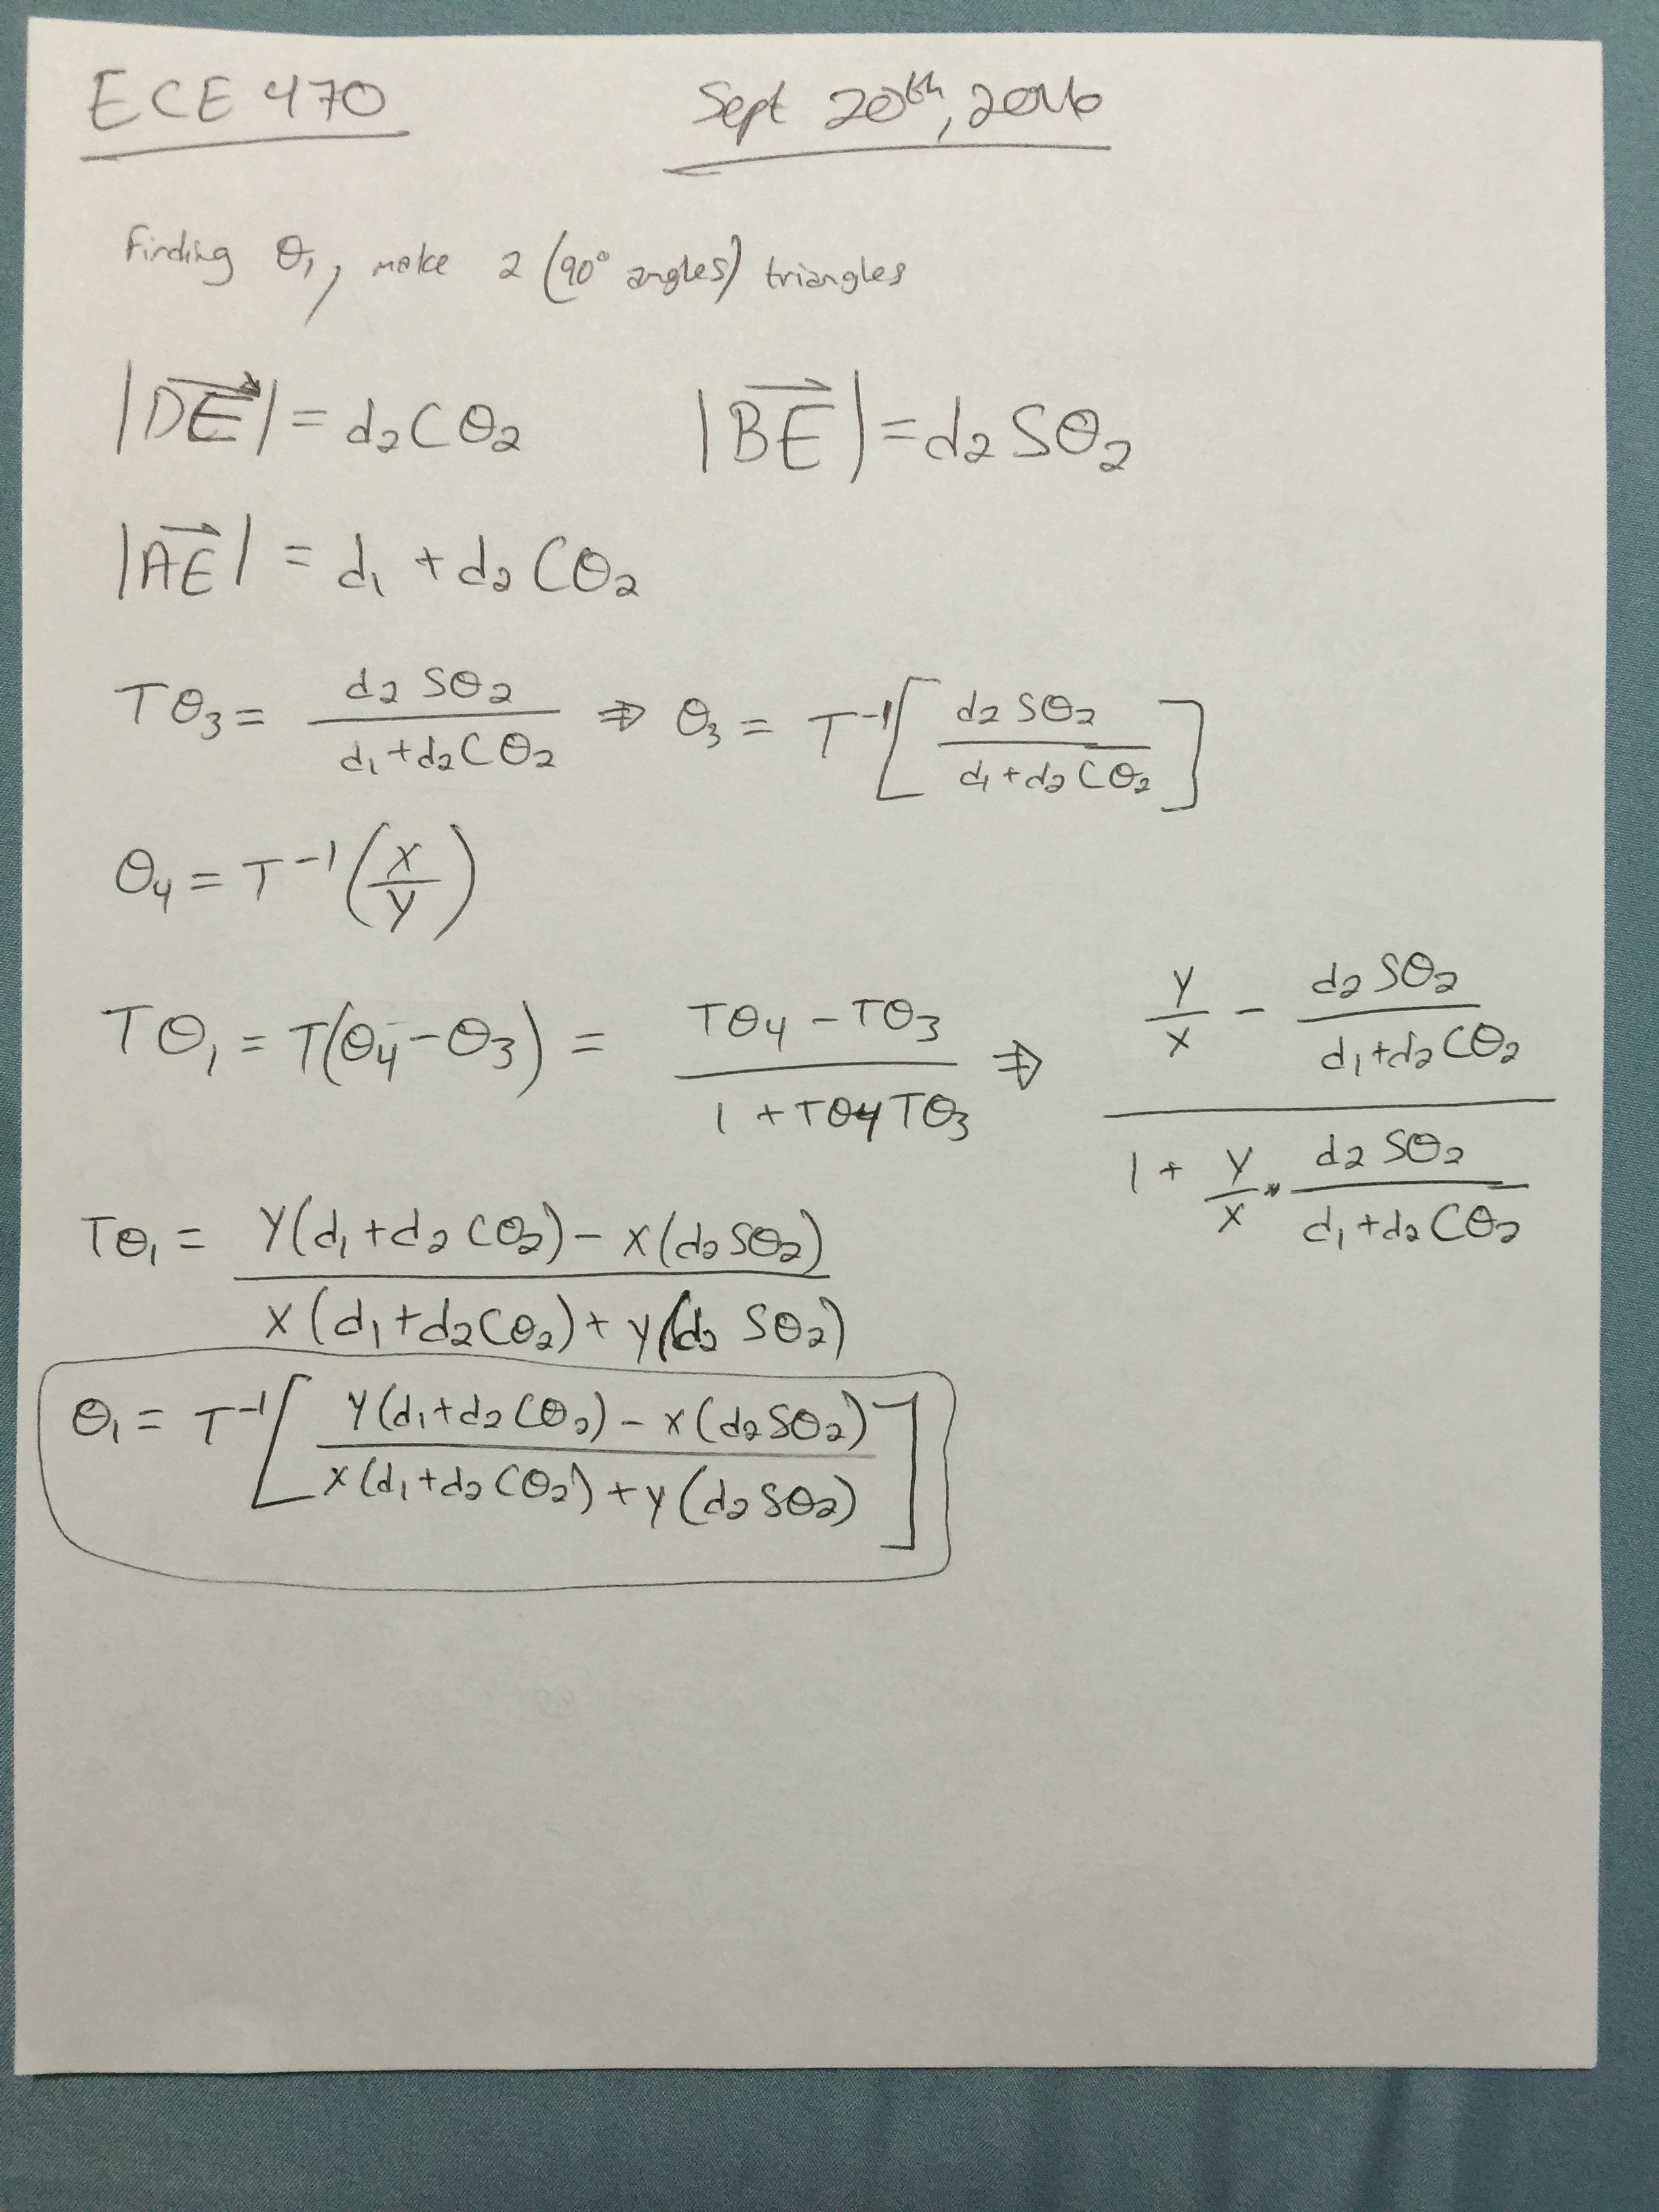 ECE 470 Sept 20th, 2016
Finding θ₁, make 2 (90° angles) triangles
|DE⃗| = d₂Cθ₂ |BE⃗| = d₂Sθ₂
|AE⃗| = d₁ + d₂Cθ₂
Tθ₃ = d₂Sθ₂ / d₁+d₂Cθ₂ ⇒ θ₃ = T⁻¹[ d₂Sθ₂ / d₁+d₂Cθ₂ ]
θ₄ = T⁻¹(x/y)
Tθ₁ = T(θ₄-θ₃) = Tθ₄ - Tθ₃ / 1 + Tθ₄Tθ₃ ⇒ y/x - d₂Sθ₂ / d₁+d₂Cθ₂ / 1 + y/x · d₂Sθ₂ / d₁+d₂Cθ₂
Tθ₁ = y(d₁+d₂Cθ₂) - x(d₂Sθ₂) / x(d₁+d₂Cθ₂) + y(d₂Sθ₂)
θ₁ = T⁻¹[ y(d₁+d₂Cθ₂) - x(d₂Sθ₂) / x(d₁+d₂Cθ₂) + y(d₂Sθ₂) ]